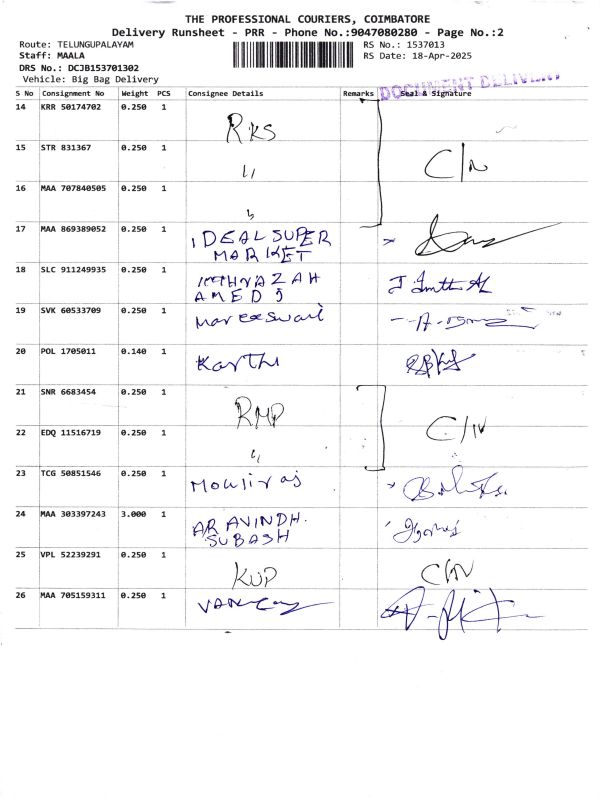 THE PROFESSIONAL COURIERS, COIMBATORE
Delivery Runsheet - PRR - Phone No.:9047080280 - Page No.:2
Route: TELUNGUPALAYAM
RS No.: 1537013
Staff: MAALA
RS Date: 18-Apr-2025
DRS No.: DCJB153701302
Vehicle: Big Bag Delivery
DOCUMENT DELIVERY
S No Consignment No Weight PCS Consignee Details Remarks Seal & Signature
14 KRR 50174702 0.250 1 RKS
15 STR 831367 0.250 1 ,, C/N
16 MAA 707840505 0.250 1 ,,
17 MAA 869389052 0.250 1 IDEAL SUPER
MARKET
18 SLC 911249935 0.250 1
AMED
19 SVK 60533709 0.250 1 Mareeswari
20 POL 1705011 0.140 1 Karthi
21 SNR 6683454 0.250 1 RMP
22 EDQ 11516719 0.250 1 ,, C/N
23 TCG 50851546 0.250 1 Mouliraj
24 MAA 303397243 3.000 1 ARAVINDH.
SUBASH
25 VPL 52239291 0.250 1 KUP C/N
26 MAA 705159311 0.250 1